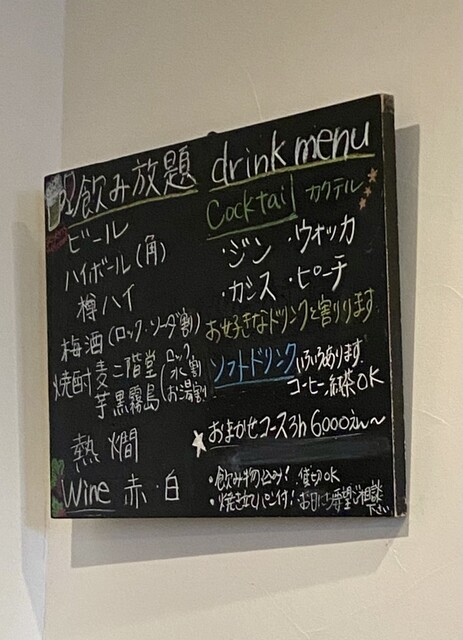 飲み放題 drink menu
ビール
ハイボール(角)
樽ハイ
梅酒(ロック・ソーダ割)
焼酎 麦 二階堂
芋 黒霧島
(ロック
水割
お湯割)
熱燗
Wine 赤・白
Cocktail カクテル
・ジン ・ウォッカ
・カシス ・ピーチ
お好きなドリンクと割ります
ソフトドリンク いろいろあります。
コーヒー、紅茶OK
おまかせコース3h 6000えん〜
・飲み物込み! 貸切OK
・焼き立てパン付! お日にち要望ご相談
下さい